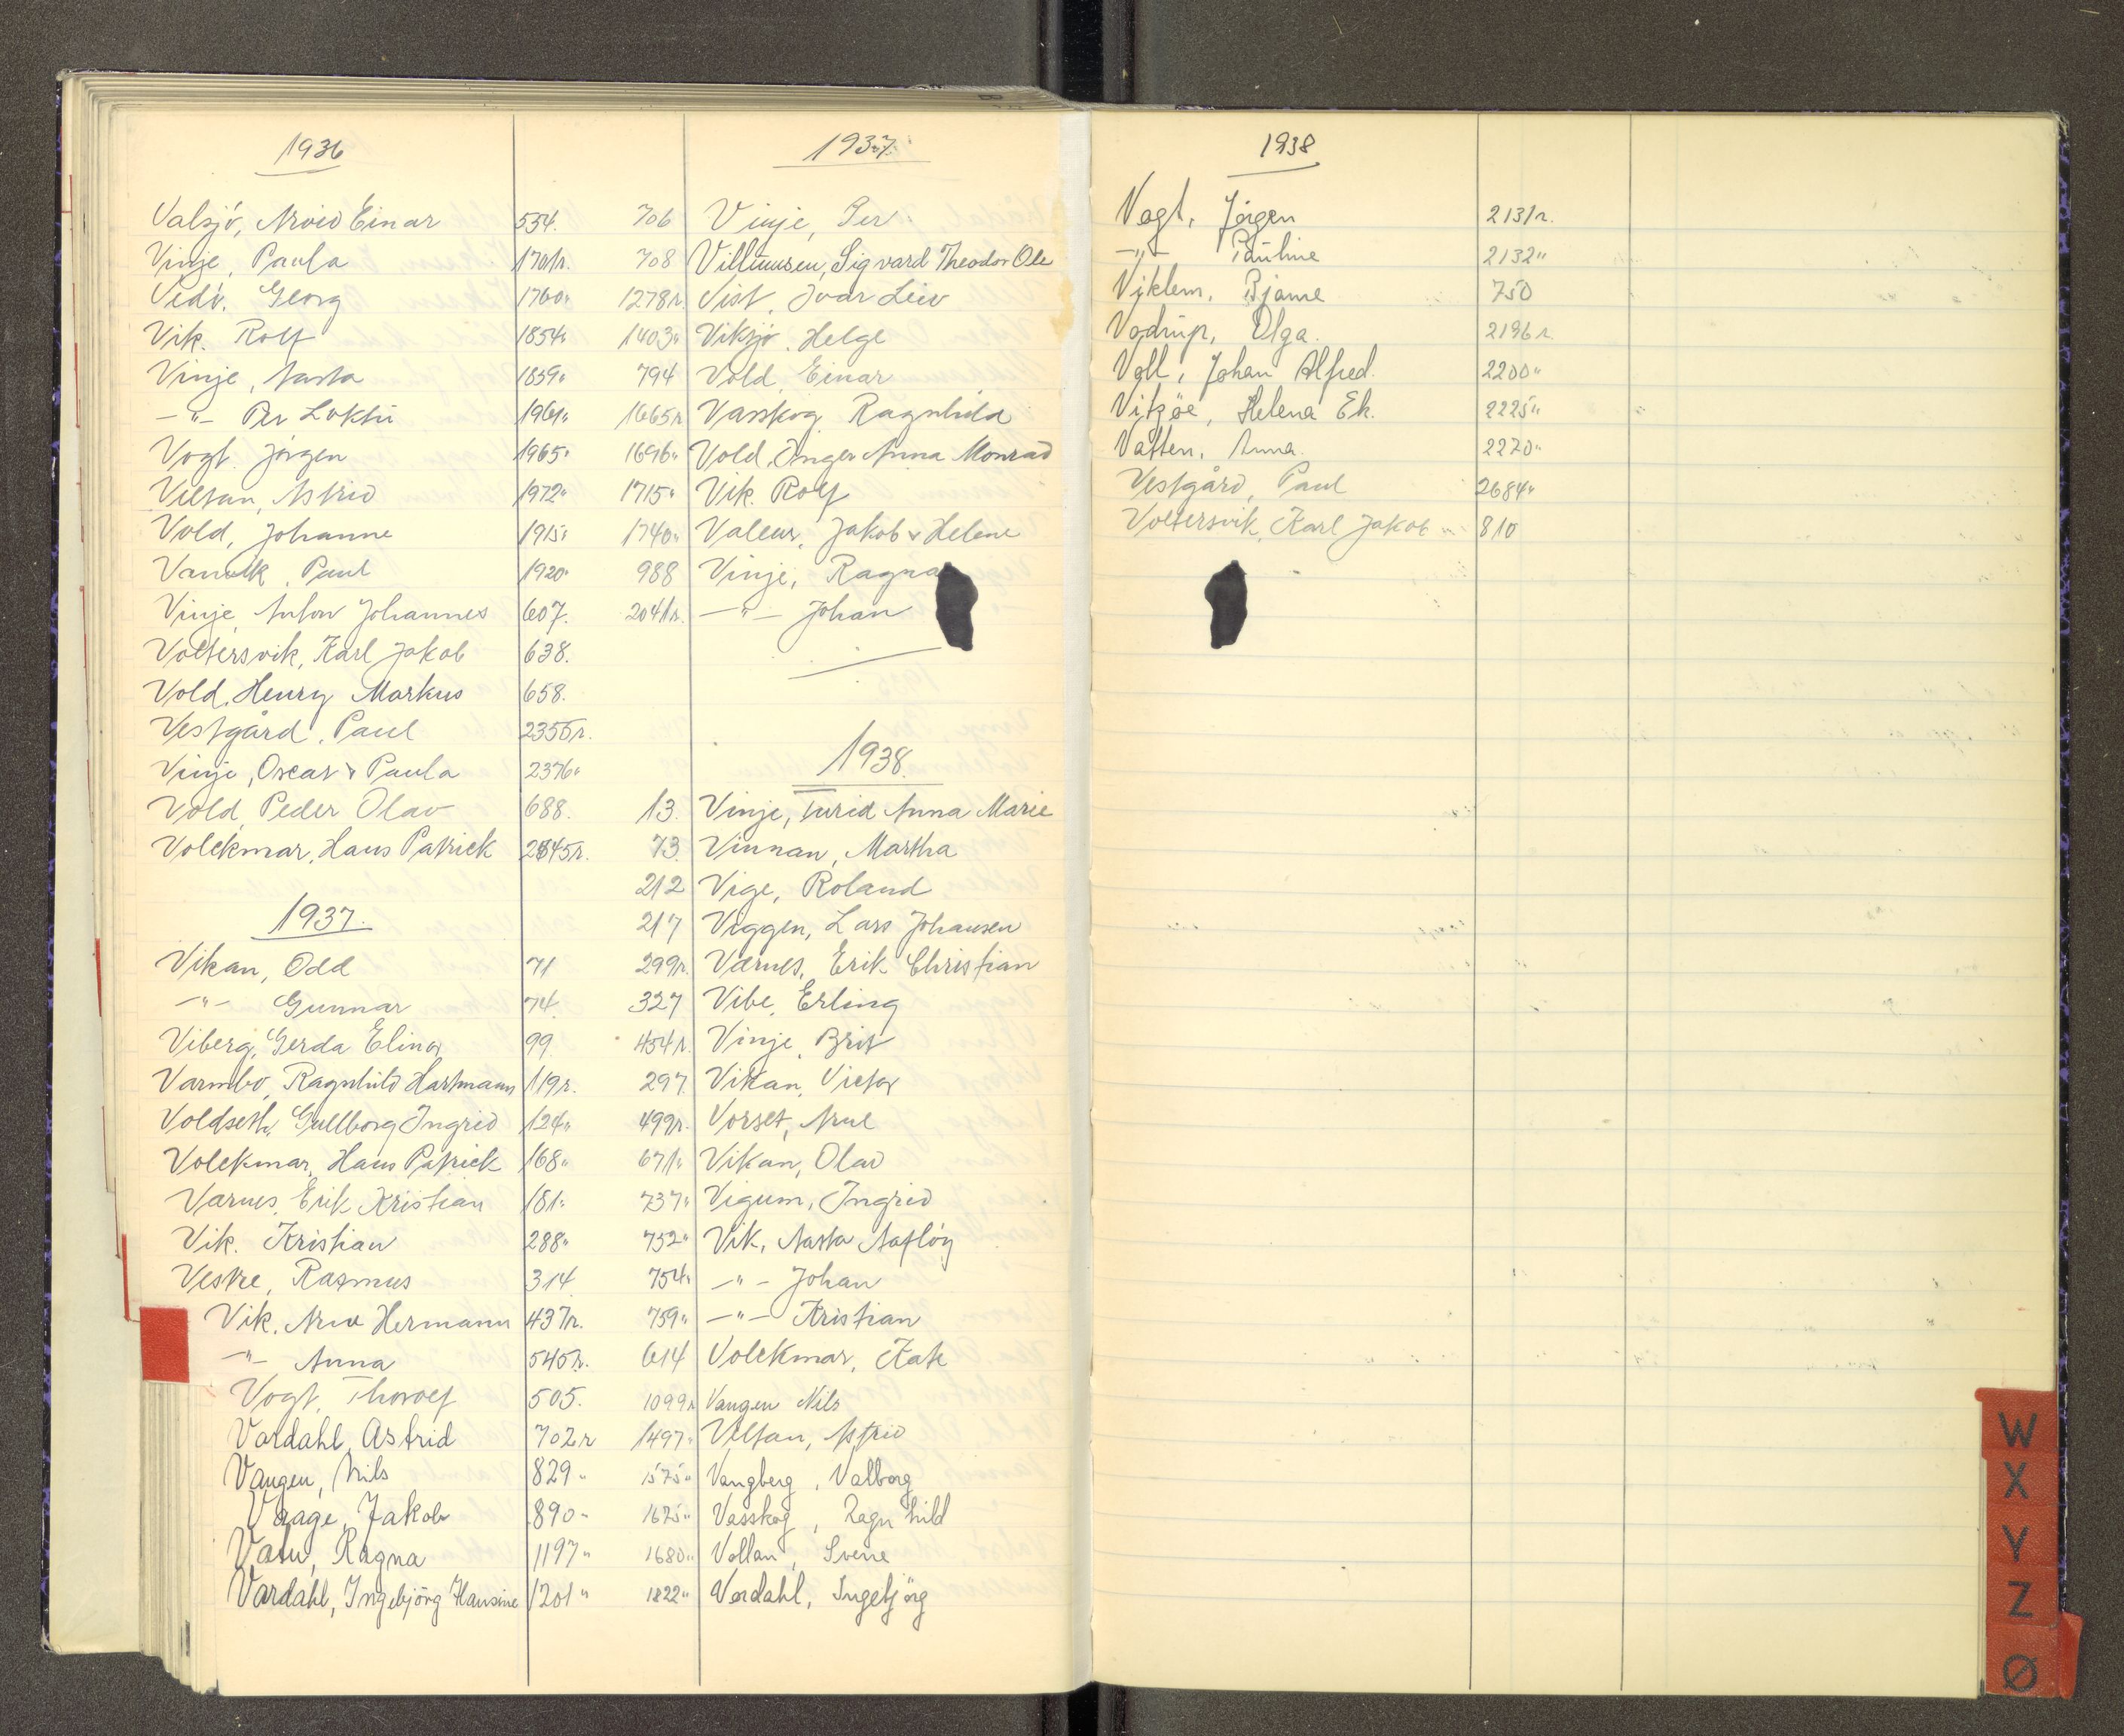 1936
Valsjö, Arvid Einar 554.
Vinje, Paula 1701r.
Vedö, Georg 1760"
Vik. Rolf 1854"
Vinje, Aasta 1859"
—"— Per Loktu 1961"
Vogt. Jörgen 1965"
Veltan, Astrid 1972"
Vold, Johanne 1915"
Vanvik, Paul 1920"
Vinje, Anton Johannes 607.
Voltersvik, Karl Jakob 638.
Vold, Henry Markus 658.
Vestgård, Paul 2355r.
Vinje, Oscar & Paula 2376"
Vold, Peder Olav 688.
Volckmar, Hans Patrick 2845r.
1937.
Vikan, Odd 71
—"— Gunnar 74.
Viberg, Gerda Elinor 99.
Varmbo, Ragnhild Hartmann 119r.
Voldseth, Gullborg Ingrid 124"
Volckmar, Hans Patrick 168"
Værnes, Erik Kristian 181"
Vik. Kristian 288"
Veske, Rasmus 314.
Vik. Arne Hermann 437r.
—"— Anna 545r.
Vogt, Thorolf 505.
Vardahl, Astrid 702r
Vangen, Nils 829"
Vaage, Jakob 890"
Vatn, Ragna 1197"
Vardahl, Ingebjörg Hansine 1201"
1937.
706 Vinje, Per
708 Villumsen, Sigvard Theodor Ole
1278r. Vist, Ivar Leiv
1403" Viksjö, Helge
794 Vold, Einar
1665r Vasskog, Ragnhild
1696" Vold, Inger Anna Monrad
1715" Vik. Rolf
1740" Valeur, Jakob & Helene
988 Vinje, Ragna
2041r. —"— Johan
1938.
13. Vinje, Turid Anna Marie
73. Vinnan, Martha
212 Vige, Roland
217 Viggen, Lars Johansen
299r. Værnes, Erik Christian
327 Vibe, Erling
454r. Vinje, Brit
297 Vikan, Victor
499r. Vorset, Arne
671" Vikan, Olav
737" Vigum, Ingrid
752" Vik, Aasta Aaflöy
754" —"— Johan
759" —"— Kristian
614 Volckmar, Kate
1099r Vangen Nils
1497" Veltan, Astrid
1575" Vangberg, Valborg
1675" Vasskog, Ragnhild
1680" Vollan, Svene
1822" Vardahl, Ingebjörg
1938
Vogt, Jörgen 2131r.
—"— Pauline 2132"
Viklem, Bjarne 750
Vadrup, Olga. 2196r.
Voll, Johan Alfred. 2200"
Vitsöe, Helena Ek. 2225"
Vatten, Anna. 2270"
Vestgård, Paul 2684"
Voltersvik, Karl Jakob 810
W
X
Y
Z
Ø